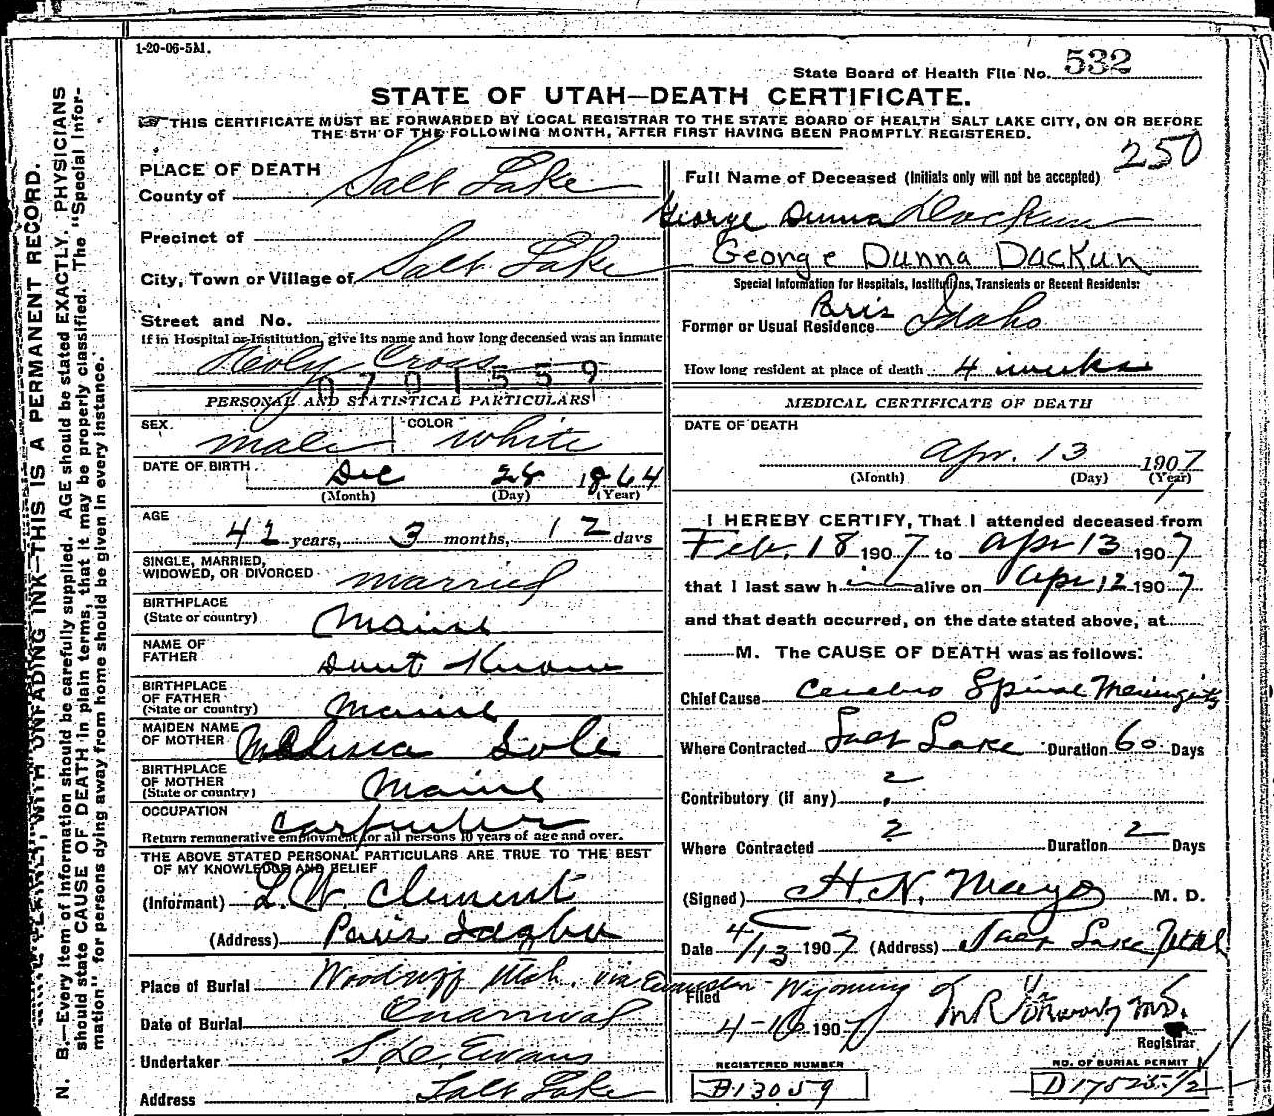 1-20-06-5M.
State Board of Health File No. 532
STATE OF UTAH—DEATH CERTIFICATE.
THIS CERTIFICATE MUST BE FORWARDED BY LOCAL REGISTRAR TO THE STATE BOARD OF HEALTH SALT LAKE CITY, ON OR BEFORE
THE 5TH OF THE FOLLOWING MONTH, AFTER FIRST HAVING BEEN PROMPTLY REGISTERED.
250
N. B.—Every item of information should be carefully supplied. AGE should be stated EXACTLY. PHYSICIANS
should state CAUSE OF DEATH in plain terms, that it may be properly classified. The "Special Infor-
mation" for persons dying away from home should be given in every instance.
WITH UNFADING INK—THIS IS A PERMANENT RECORD.
PLACE OF DEATH
County of Salt Lake
Precinct of
City, Town or Village of Salt Lake
Street and No.
If in Hospital or Institution, give its name and how long deceased was an inmate
Holy Cross
0701559
PERSONAL AND STATISTICAL PARTICULARS
SEX. male COLOR white
DATE OF BIRTH. Dec 28 1864
(Month) (Day) (Year)
AGE
42 years, 3 months, 12 days
SINGLE, MARRIED,
WIDOWED, OR DIVORCED married
BIRTHPLACE
(State or country) Maine
NAME OF
FATHER Dont Know
BIRTHPLACE
OF FATHER
(State or country) Maine
MAIDEN NAME
OF MOTHER Melissa Sole
BIRTHPLACE
OF MOTHER
(State or country) Maine
OCCUPATION
carpenter
Return remunerative employment for all persons 10 years of age and over.
THE ABOVE STATED PERSONAL PARTICULARS ARE TRUE TO THE BEST
OF MY KNOWLEDGE AND BELIEF
(Informant) L. W. Clement
(Address) Paris Idaho
Place of Burial Woodruff Utah. via Evanston Wyoming
Date of Burial
Undertaker S. D. Evans
Address Salt Lake
Full Name of Deceased (Initials only will not be accepted)
George Dunna Dackun
George Dunna Dackun
Special Information for Hospitals, Institutions, Transients or Recent Residents:
Former or Usual Residence Paris Idaho
How long resident at place of death 4 weeks
MEDICAL CERTIFICATE OF DEATH
DATE OF DEATH
Apr. 13 1907
(Month) (Day) (Year)
I HEREBY CERTIFY, That I attended deceased from
Feb. 18 1907 to Apr 13 1907
that I last saw him alive on Apr 12 1907
and that death occurred, on the date stated above, at
M. The CAUSE OF DEATH was as follows:
Chief Cause Cerebro Spinal Meningitis
Where Contracted Salt Lake Duration 60 Days
Contributory (if any) ?
Where Contracted ? Duration ? Days
(Signed) H. N. Mayo M. D.
Date 4/13 1907 (Address) Salt Lake Utah
Filed
4-16 1907
Registrar
REGISTERED NUMBER
B13059
NO. OF BURIAL PERMIT
D17525 1/2